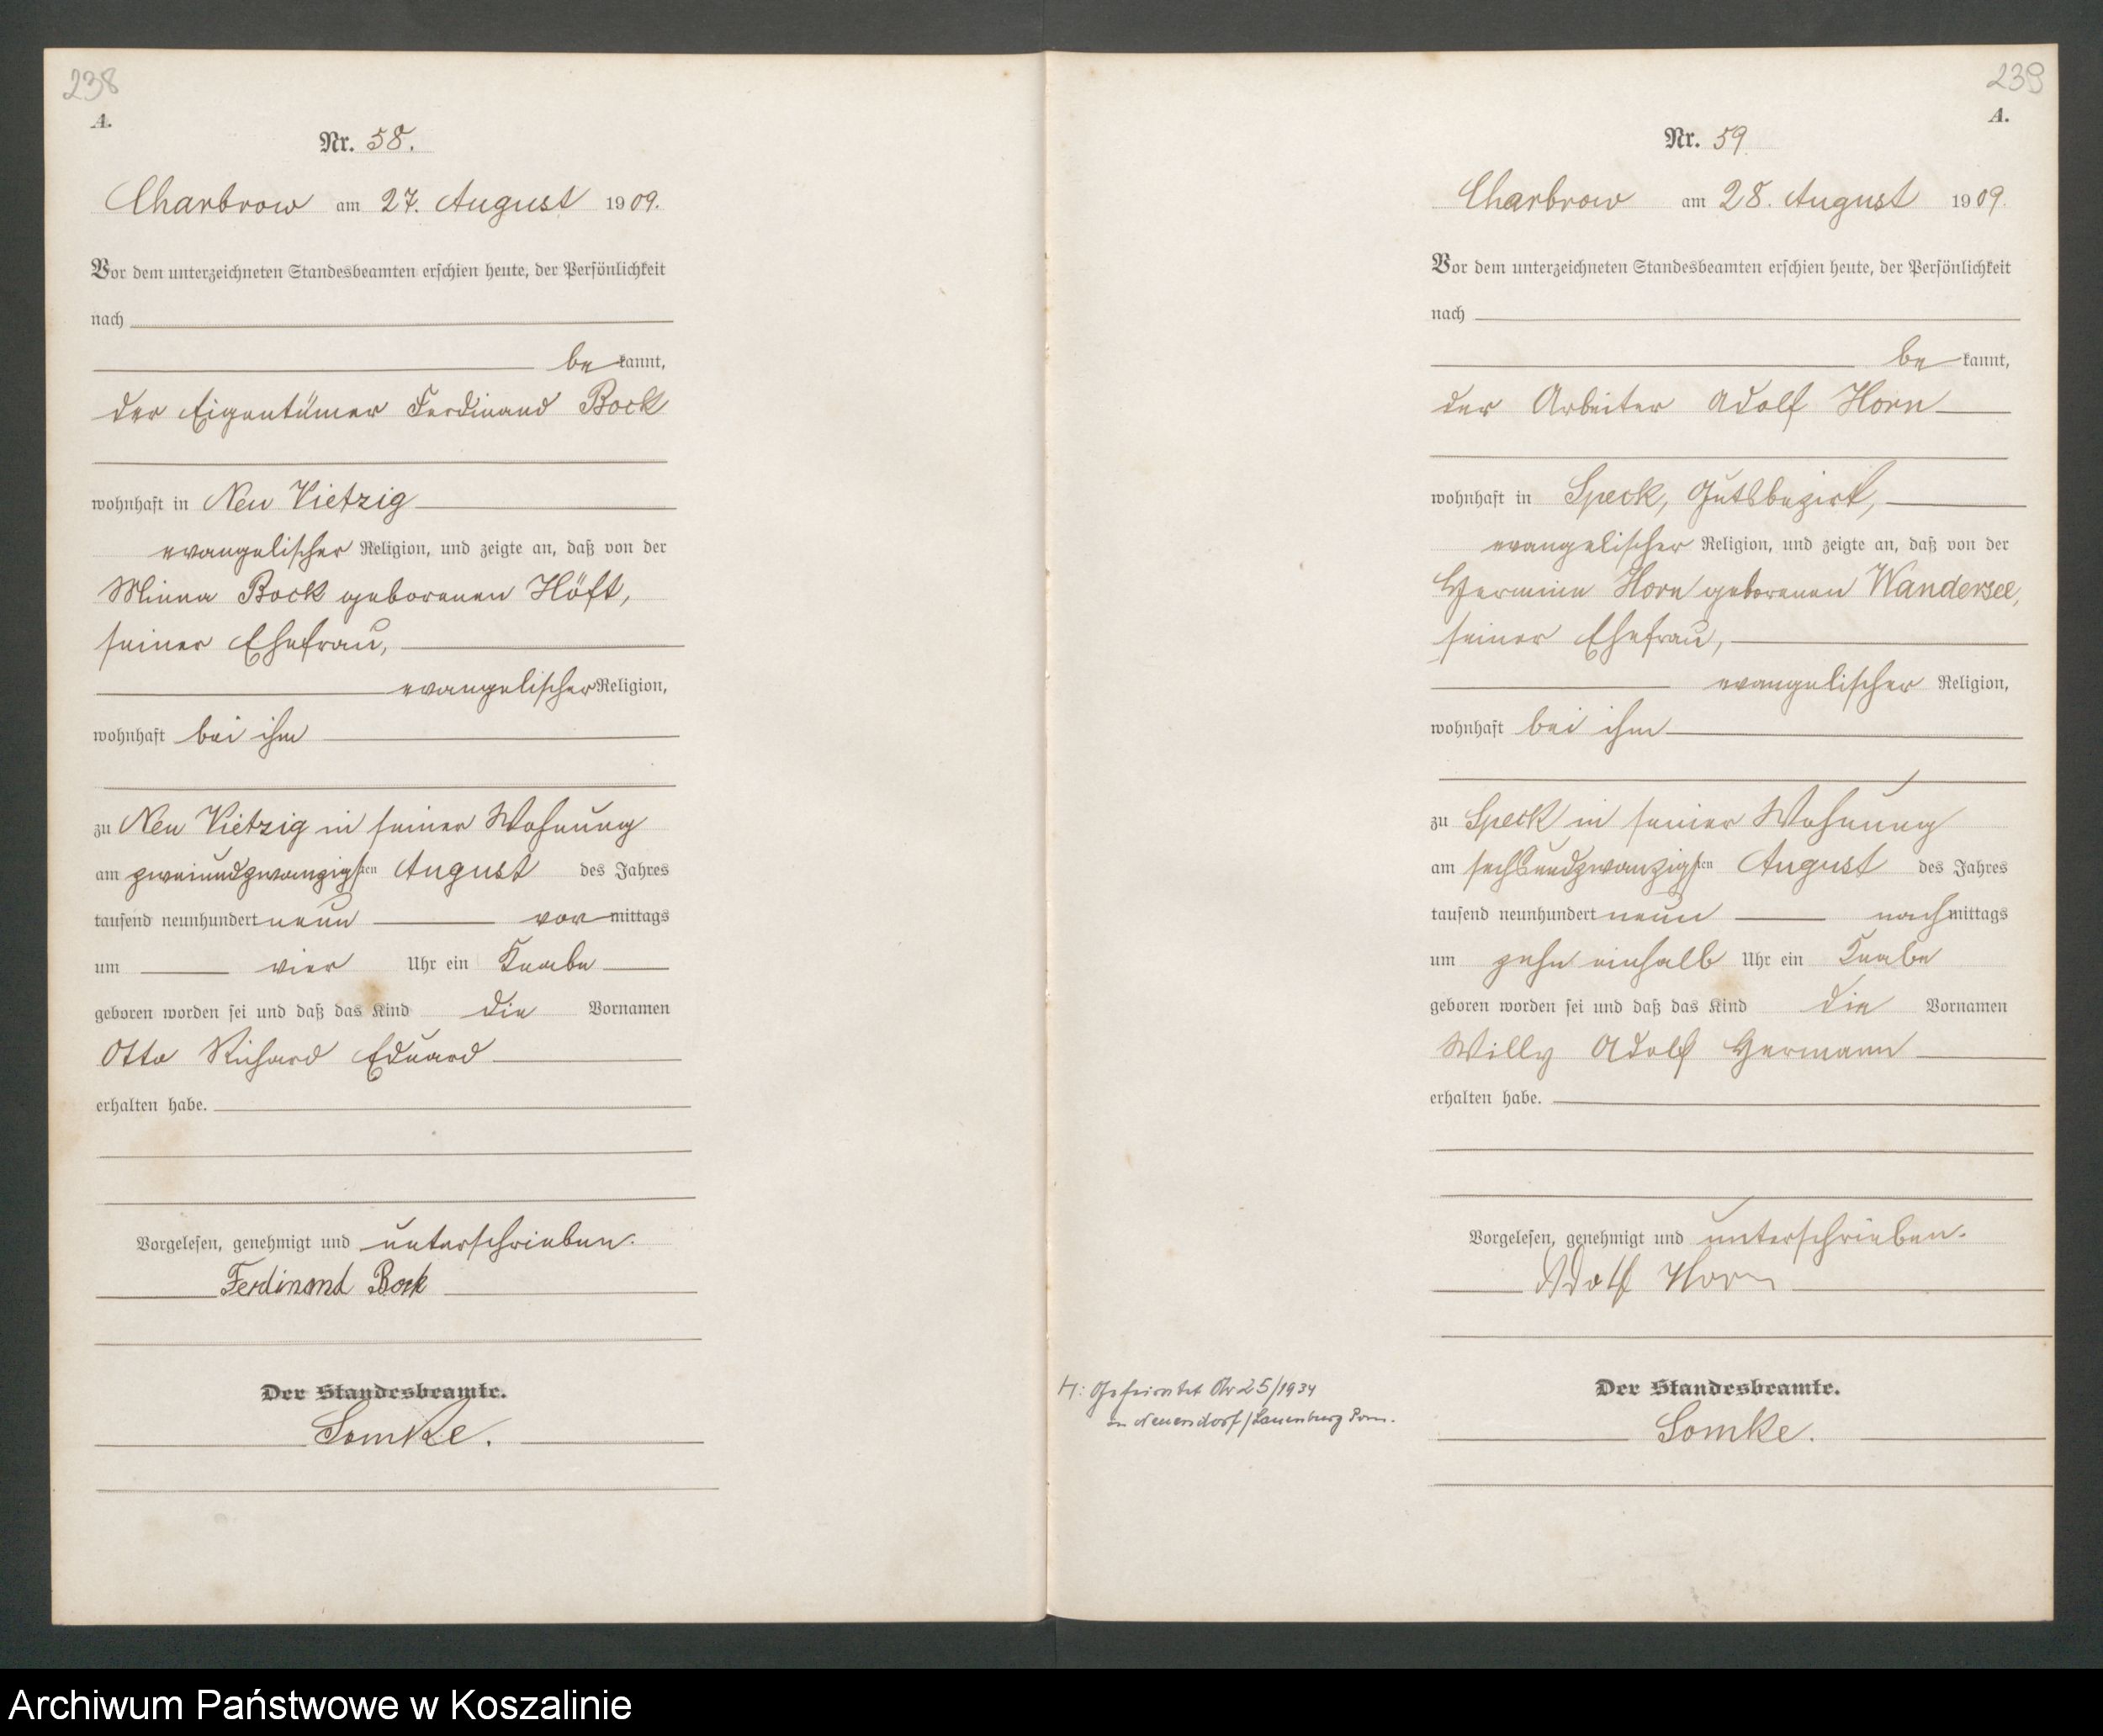 238
A.
Nr. 58.
Charbrow am 27. August 1909.
Vor dem unterzeichneten Standesbeamten erschien heute, der Persönlichkeit
nach
be kannt,
der Eigentümer Ferdinand Bock
wohnhaft in Neu Vietzig
evangelischer Religion, und zeigte an, daß von der
Minna Bock geborenen Höft,
seiner Ehefrau,
evangelischer Religion,
wohnhaft bei ihm
zu Neu Vietzig in seiner Wohnung
am zweiundzwanzigsten August des Jahres
tausend neunhundert neun vor mittags
um vier Uhr ein Knabe
geboren worden sei und daß das Kind die Vornamen
Otto Richard Eduard
erhalten habe.
Vorgelesen, genehmigt und unterschrieben.
Ferdinand Bock
Der Standesbeamte.
Somke.
239
A.
Nr. 59
Charbrow am 28. August 1909.
Vor dem unterzeichneten Standesbeamten erschien heute, der Persönlichkeit
nach
be kannt,
der Arbeiter Adolf Horn
wohnhaft in Speck, Gutsbezirk,
evangelischer Religion, und zeigte an, daß von der
Hermine Horn geborenen Wandersee,
seiner Ehefrau,
evangelischer Religion,
wohnhaft bei ihm
zu Speck in seiner Wohnung
am sechsundzwanzigsten August des Jahres
tausend neunhundert neun nach mittags
um zehn einhalb Uhr ein Knabe
geboren worden sei und daß das Kind die Vornamen
Willy Adolf Hermann
erhalten habe.
Vorgelesen, genehmigt und unterschrieben.
Adolf Horn
Der Standesbeamte.
Somke.
H: Geheiratet Nr 25/1934
in Neuendorf/Lauenburg Pom.
Archiwum Państwowe w Koszalinie